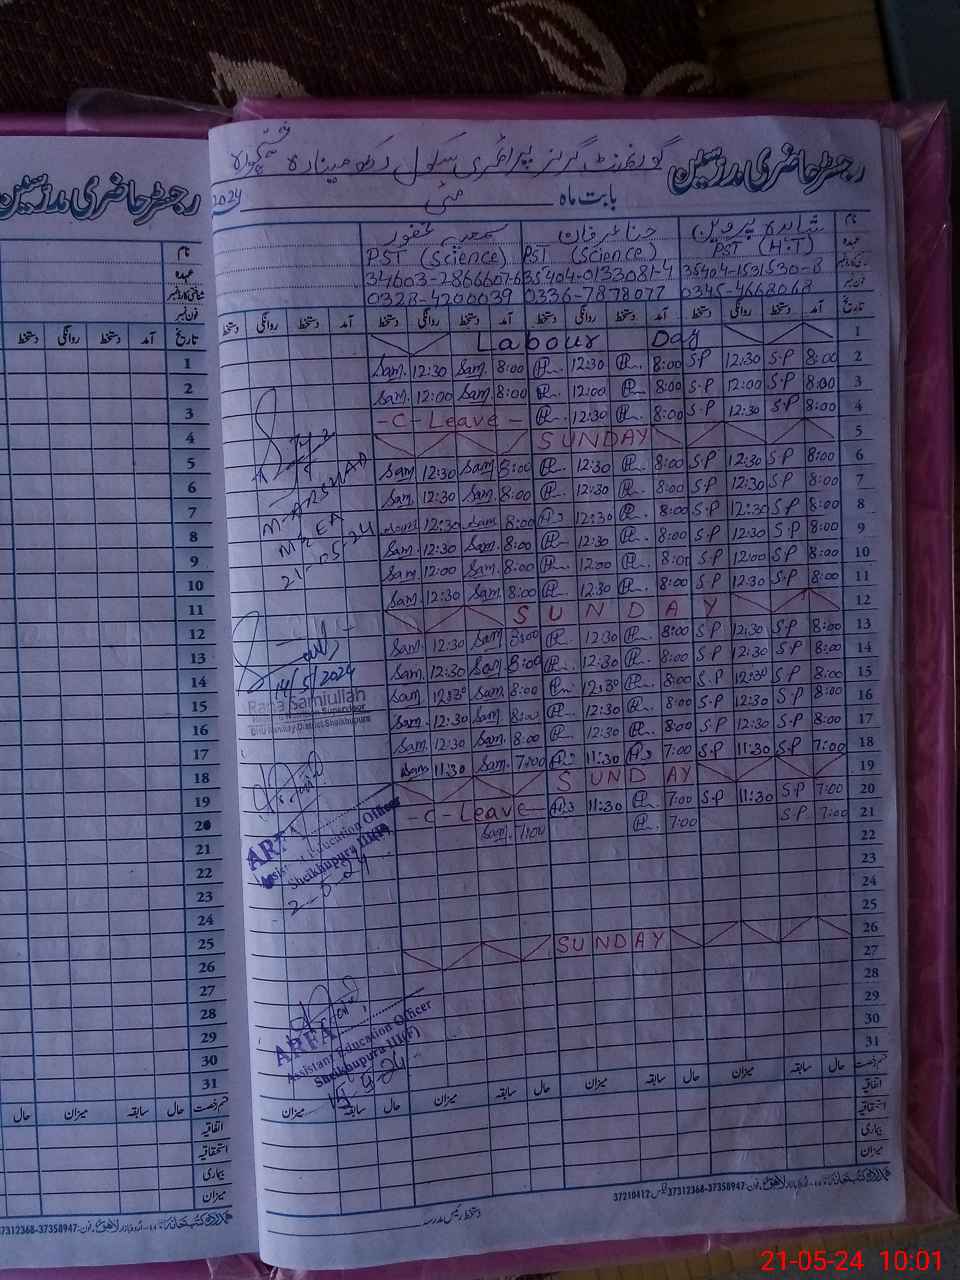 رجسٹر حاضری مدرسین گورنمنٹ گرلز پرائمری سکول
بابت ماہ مئی 2024
نام شاہدہ پروین حنا عرفان سمعیہ غفور
عہدہ PST (H.T) PST (Science) PST (Science)
شناختی کارڈ نمبر 35404-1531530-8 35404-0133081-4 34603-2866607-6
فون نمبر 0345-4668068 0336-7878077 0328-4200039
تاریخ آمد دستخط روانگی دستخط آمد دستخط روانگی دستخط آمد دستخط روانگی دستخط آمد دستخط روانگی دستخط
1 Labour Day
2 8:00 S.P 12:30 S.P 8:00 12:30 8:00 Sam. 12:30 Sam.
3 8:00 S.P 12:00 S.P 8:00 12:00 8:00 Sam. 12:00 Sam.
4 8:00 S.P 12:30 S.P 8:00 12:30 -C-Leave-
5 SUNDAY
6 8:00 S.P 12:30 S.P 8:00 12:30 8:00 Sam. 12:30 Sam.
7 8:00 S.P 12:30 S.P 8:00 12:30 8:00 Sam. 12:30 Sam.
8 8:00 S.P 12:30 S.P 8:00 12:30 8:00 Sam. 12:30 Sam.
9 8:00 S.P 12:30 S.P 8:00 12:30 8:00 Sam. 12:30 Sam.
10 8:00 S.P 12:00 S.P 8:00 12:00 8:00 Sam. 12:00 Sam.
11 8:00 S.P 12:30 S.P 8:00 12:30 8:00 Sam. 12:30 Sam.
12 SUNDAY
13 8:00 S.P 12:30 S.P 8:00 12:30 8:00 Sam. 12:30 Sam.
14 8:00 S.P 12:30 S.P 8:00 12:30 8:00 Sam. 12:30 Sam.
15 8:00 S.P 12:30 S.P 8:00 12:30 8:00 Sam. 12:30 Sam.
16 8:00 S.P 12:30 S.P 8:00 12:30 8:00 Sam. 12:30 Sam.
17 8:00 S.P 12:30 S.P 8:00 12:30 8:00 Sam. 12:30 Sam.
18 7:00 S.P 11:30 S.P 7:00 11:30 7:00 Sam. 11:30 Sam.
19 SUNDAY
20 7:00 S.P 11:30 S.P 7:00 11:30 -C-Leave-
21 7:00 S.P 7:00 7:00 Sam.
22
23
24
25
26 SUNDAY
27
28
29
30
31
قسم رخصت حال سابقہ میزان حال سابقہ میزان حال سابقہ میزان حال سابقہ میزان
اتفاقیہ
استحقاقیہ
بیماری
میزان
دستخط رئیس مدرسہ
37312368-37358947 37210412
M-ARSHAD
MREA
21-05-24
14/5/2024
Rana Samiullah
Assistant Education Officer
Sheikhupura III(F)
2-5-24
Assistant Education Officer
Sheikhupura III(F)
رجسٹر حاضری مدرسین
نام
عہدہ
شناختی کارڈ نمبر
فون نمبر
تاریخ آمد دستخط روانگی دستخط
1
2
3
4
5
6
7
8
9
10
11
12
13
14
15
16
17
18
19
20
21
22
23
24
25
26
27
28
29
30
31
قسم رخصت حال سابقہ میزان حال
اتفاقیہ
استحقاقیہ
بیماری
میزان
37312368-37358947
21-05-24 10:01